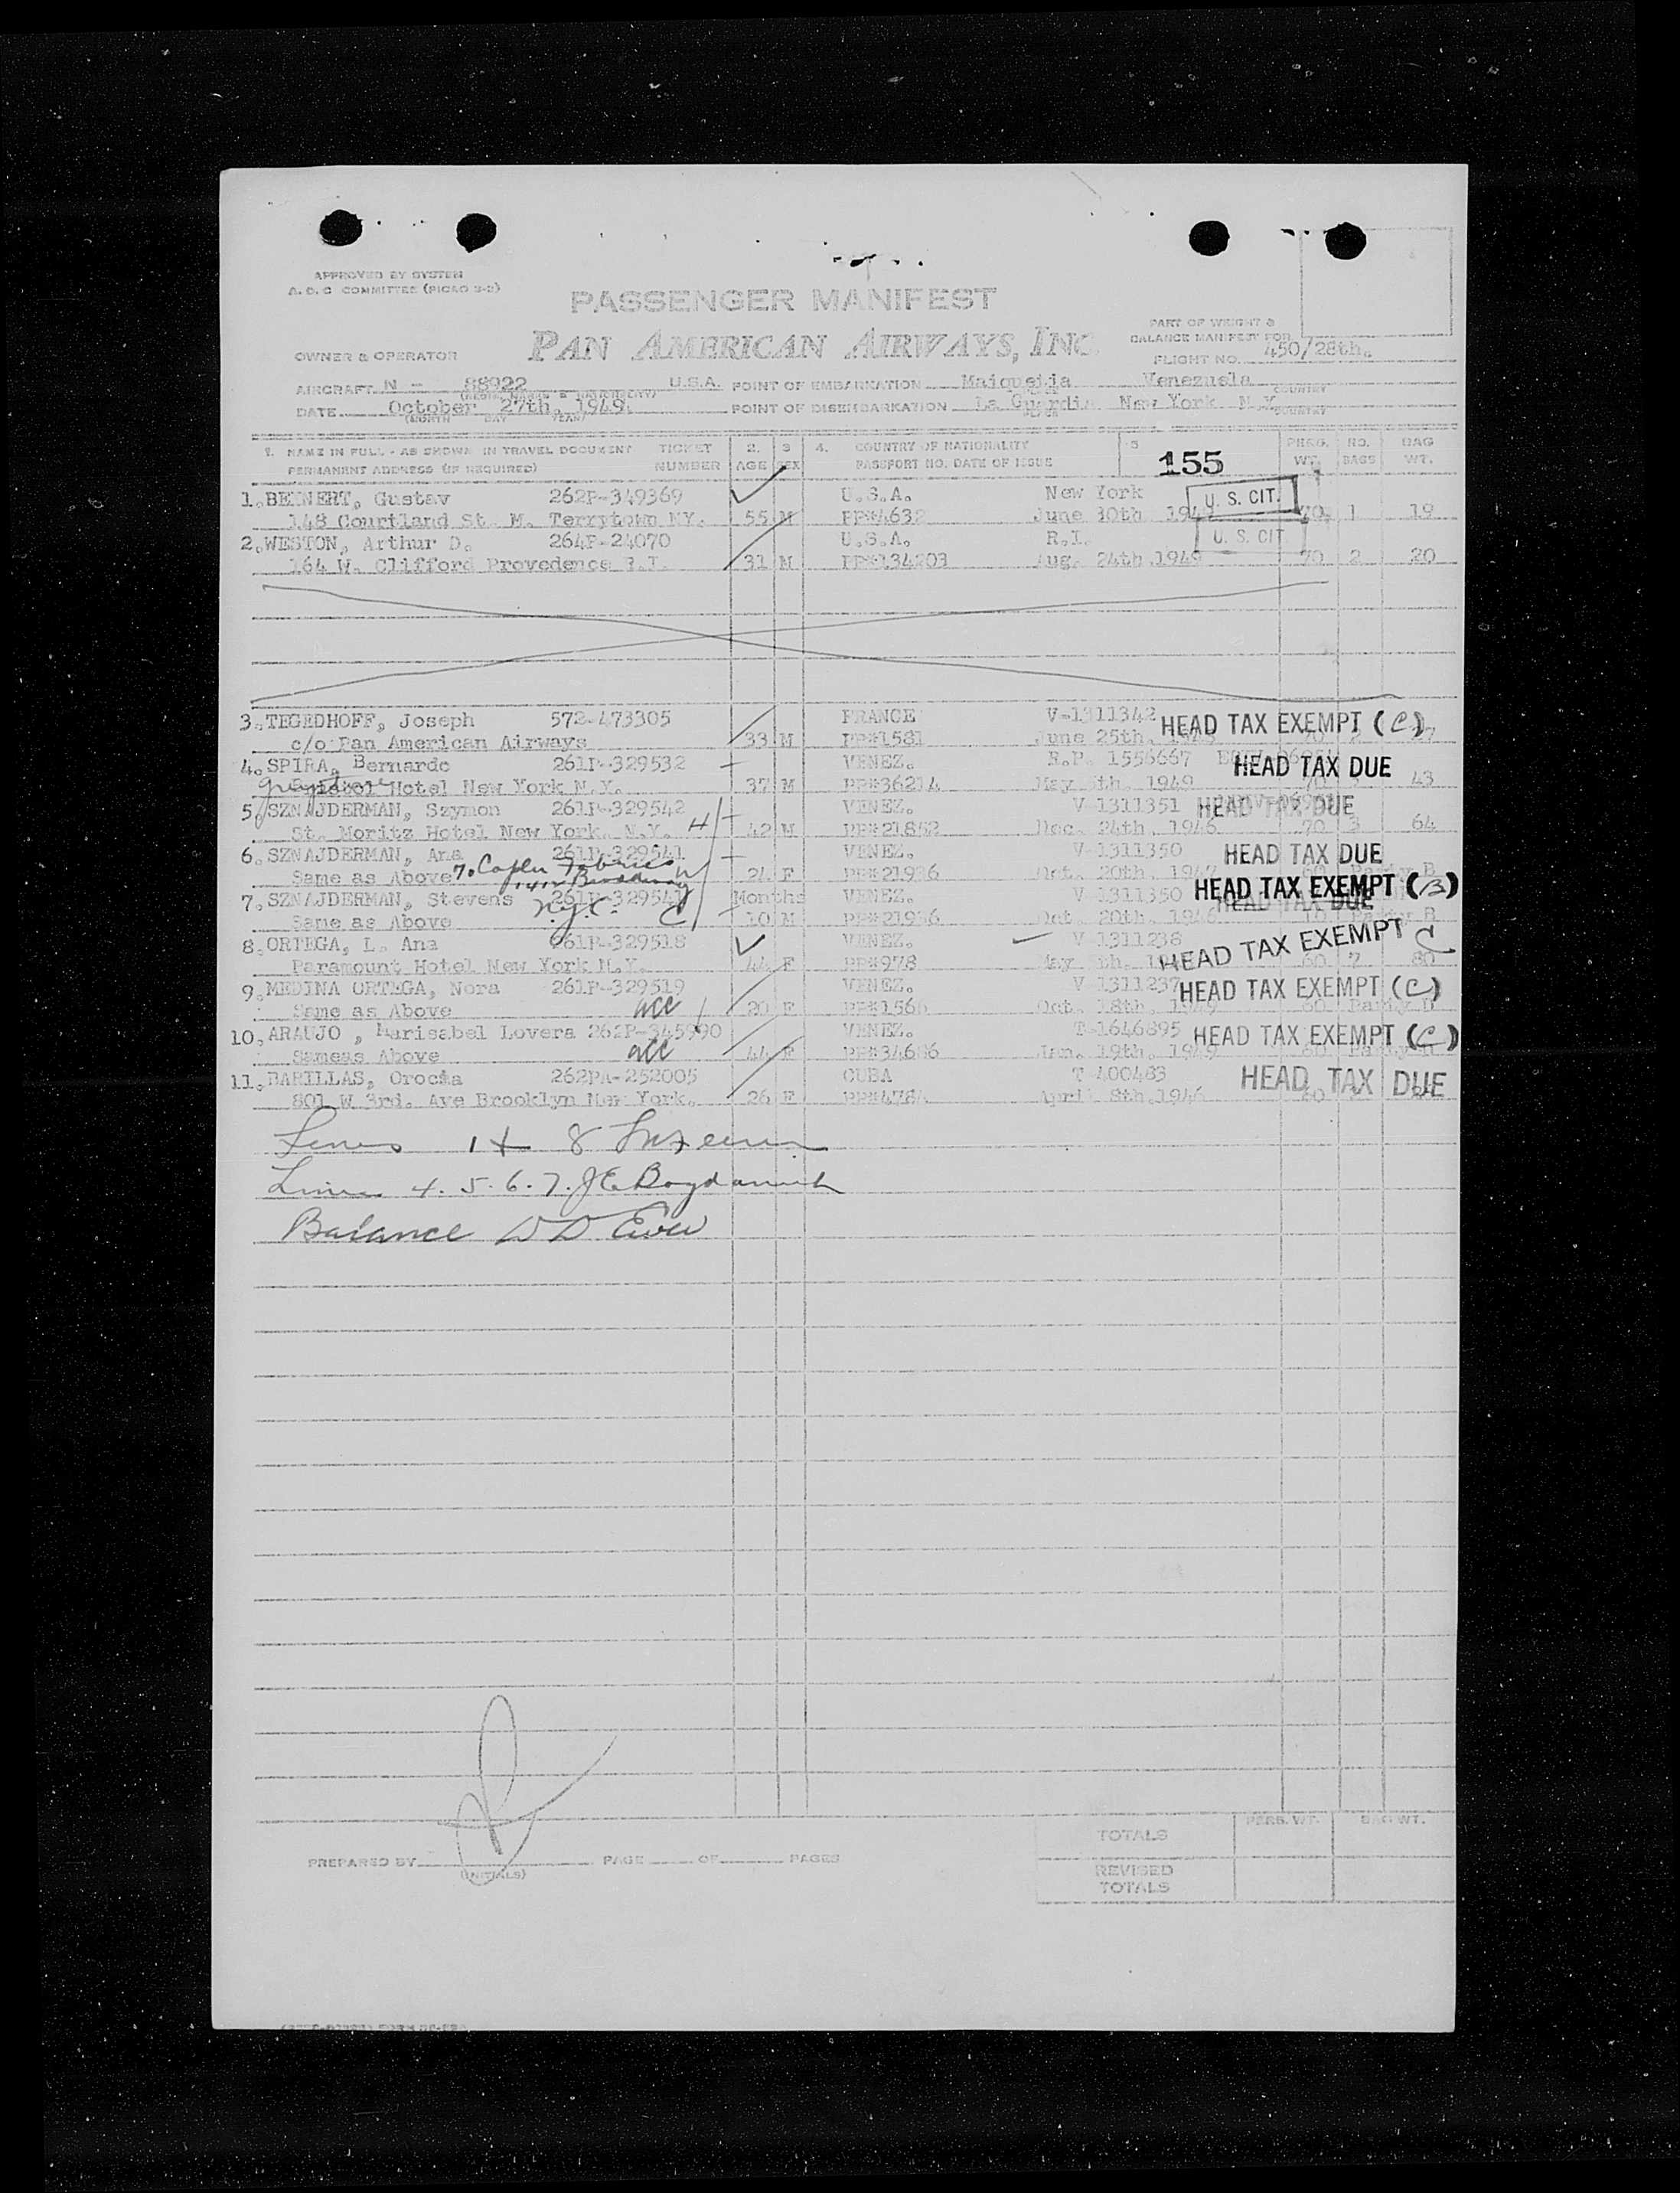 APPROVED BY SYSTEM
A.O.C COMMITTEE (PICAO 3-2)
PASSENGER MANIFEST
PAN AMERICAN AIRWAYS, INC.
PART OF WEIGHT &
BALANCE MANIFEST FOR
FLIGHT NO. 450/28th.
OWNER & OPERATOR
AIRCRAFT N - 88922 U.S.A. POINT OF EMBARKATION Maiquetia Venezuela COUNTRY
DATE October 27th, 1949. POINT OF DISEMBARKATION La Guardia New York N.Y. COUNTRY
(MONTH DAY YEAR)
1. NAME IN FULL - AS SHOWN IN TRAVEL DOCUMENT TICKET 2. 3 4. COUNTRY OF NATIONALITY 5 155 PERS. NO. BAG
PERMANENT ADDRESS (IF REQUIRED) NUMBER AGE SEX PASSPORT NO. DATE OF ISSUE WT. BAGS WT.
1. BEINERT, Gustav 262P-349369 U.S.A. New York U. S. CIT.
148 Courtland St N. Terrytown NY. 55 M PP#4632 June 30th 70 1 19
2. WESTON, Arthur D. 264P-24070 U.S.A. R.I. U. S. CIT.
164 W. Clifford Provedence R.I. 31 M PP#134203 Aug. 24th.1949 70 2 20
3. TEGEDHOFF, Joseph 572-473305 FRANCE V-1311342 HEAD TAX EXEMPT (C)
c/o Pan American Airways 33 M PP#1581 June 25th.
4. SPIRA, Bernardo 261P-329532 VENEZ. R.P. 1556667 HEAD TAX DUE
Hotel New York N.Y. 37 M PP#36214 May 1949 70 43
5. SZNAJDERMAN, Szymon 261P-329542 VENEZ. V-1311351 HEAD TAX DUE
St. Moritz Hotel New York. N.Y. H 42 M PP#21852 Dec. 24th. 1946 70 64
6. SZNAJDERMAN, Ana 261P-329541 VENEZ. V-1311350 HEAD TAX DUE
Same as Above 24 F PP#21936 Oct. 20th.
Broadway
7. SZNAJDERMAN, Stevens Months VENEZ. V 1311350 HEAD TAX EXEMPT (B)
Same as Above N.Y.C. C 10 M PP#21936 Oct. 20th. 1946
8. ORTEGA, L. Ana 261P-329518 VENEZ. V-1311238 HEAD TAX EXEMPT C
Paramount Hotel New York N.Y. 44 F PP#978 May 60 7 80
9. MEDINA ORTEGA, Nora 261P-329519 VENEZ. V 1311237 HEAD TAX EXEMPT (C)
Same as Above acc 20 F PP#1566 Oct. 18th. 1949 60
10. ARAUJO , Marisabel Lovera 262P-345990 VENEZ. T-1646895 HEAD TAX EXEMPT (C)
Sameas Above acc 44 F PP#34686 Jan. 19th. 1949 60
11. BARILLAS, Orocia 262PA-252005 CUBA T 400483 HEAD TAX DUE
801 W 3rd. Ave Brooklyn New York. 26 F April 8th.1946 60
Lines 1 + 8
Lines 4. 5. 6. 7. J E Bogdanich
Balance
PREPARED BY PAGE OF PAGES
(INITIALS)
TOTALS PERS. WT. BAG WT.
REVISED
TOTALS